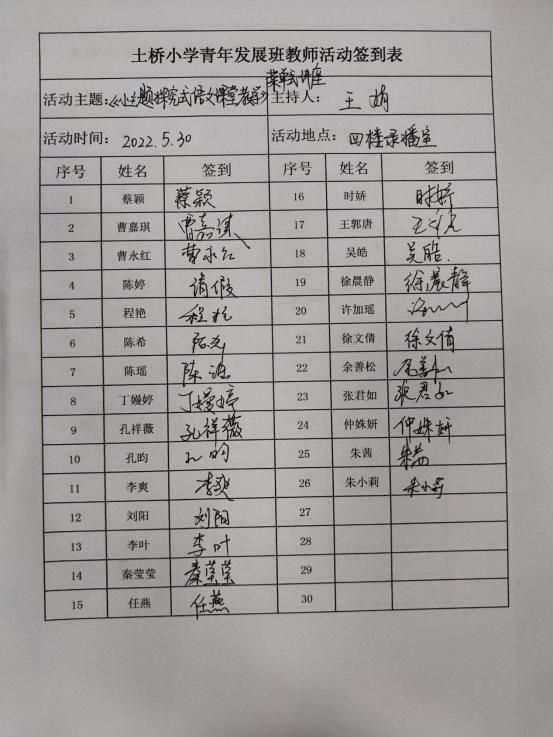 土桥小学青年发展班教师活动签到表
菜单式讲座
活动主题：《小主题探究式语文课堂教学》 主持人： 王娟
活动时间： 2022.5.30 活动地点： 四楼录播室
序号 姓名 签到 序号 姓名 签到
1 蔡颖 蔡颖 16 时娇 时娇
2 曹嘉琪 曹嘉琪 17 王郭唐
3 曹永红 曹永红 18 吴皓 吴皓.
4 陈婷 请假 19 徐晨静 徐晨静
5 程艳 程艳 20 许加瑶
6 陈希 陈希 21 徐文倩 徐文倩
7 陈瑶 陈瑶 22 余善松 余善松
8 丁嫚婷 丁嫚婷 23 张君如 张君如
9 孔祥薇 孔祥薇 24 仲姝妍 仲姝妍
10 孔昀 孔昀 25 朱茜 朱茜
11 李爽 李爽 26 朱小莉 朱小莉
12 刘阳 刘阳 27
13 李叶 李叶 28
14 秦莹莹 秦莹莹 29
15 任燕 任燕 30